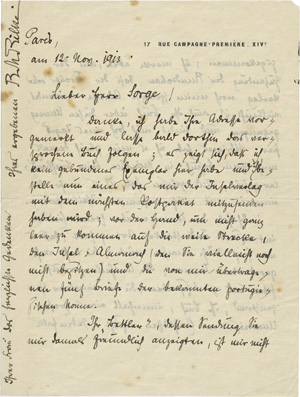 17 RUE CAMPAGNE-PREMIÈRE. XIVᵉ
Paris,
am 12. Nov. 1913.
Lieber Herr Sorge!
Danke, ich habe Ihre Adresse vor-
gemerkt und lasse bald dorthin das ver-
sprochene Buch folgen; es zeigt sich, daß ich
kein gebundenes Exemplar hier habe und be-
stelle nun eines, das mir der Inselverlag
mit dem nächsten Postpaket mitzusenden
haben wird; vor der Hand, um nicht ganz
leer zu kommen auf die weite Strecke,
den Insel-Almanach (den Sie vielleicht noch
nicht besitzen) und die von mir übertrage-
nen fünf Briefe der bekannten portugie-
sischen Nonne.
Ihr "Bettler", dessen Sendung Sie
mir damals freundlich anzeigten, ist mir nicht
Ihrer Frau den Gedanken
Ihr ergebener R M Rilke.